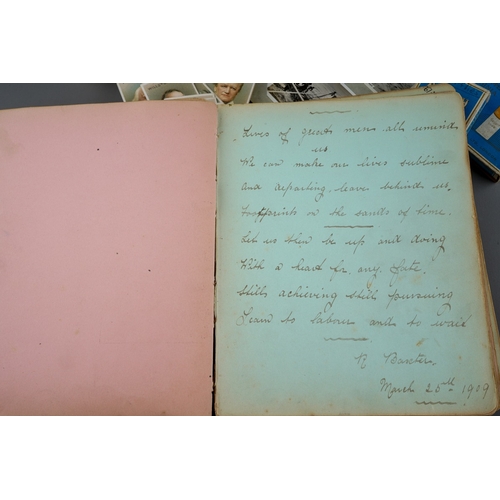 Lives of great men all remind
us
We can make our lives sublime
And departing leave behind us,
Footprints on the sands of time.
Let us then be up and doing
With a heart for any fate,
Still achieving still pursuing
Learn to labour and to wait
R Baxter.
March 25th 1909